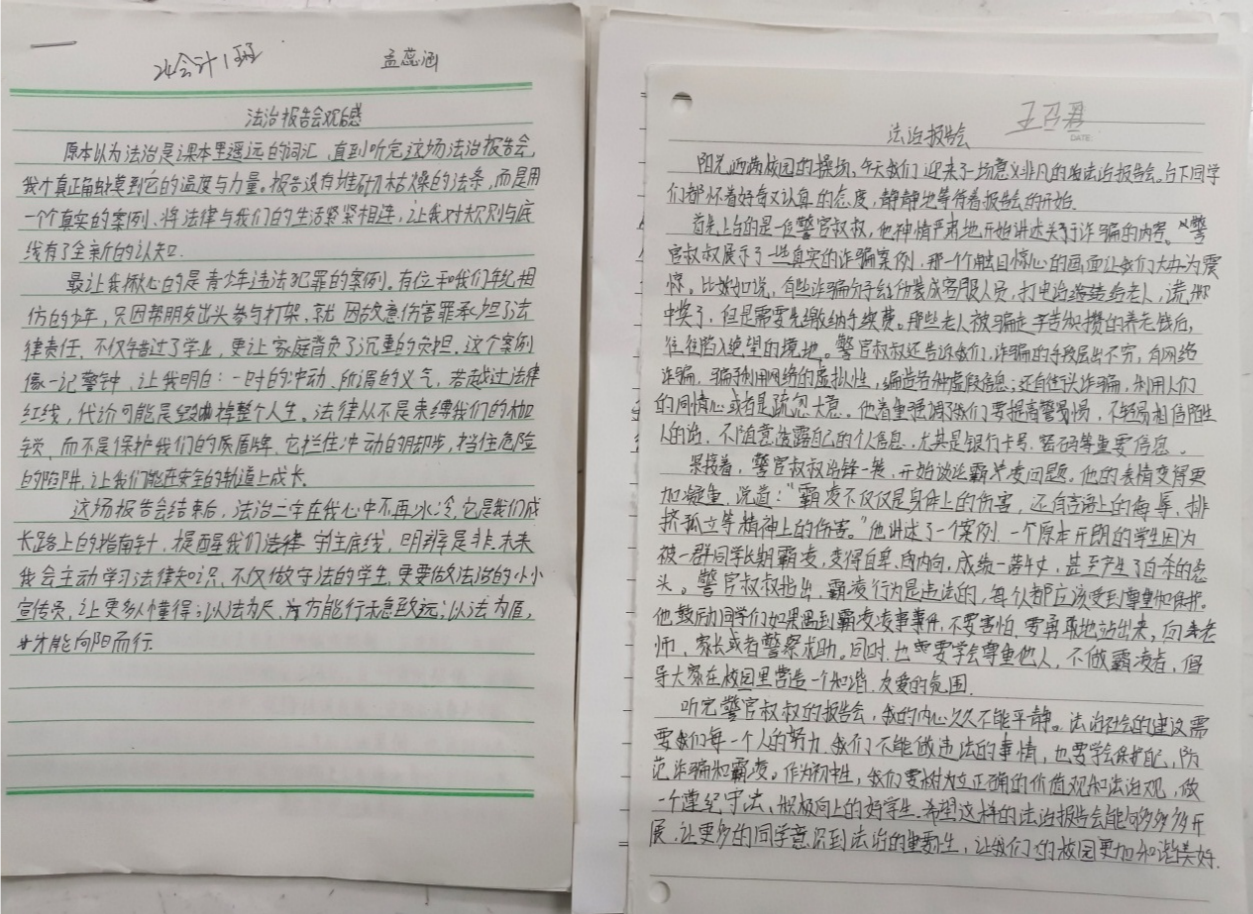 24会计1班
孟蕊涵
法治报告会观后感
原本以为法治是课本里遥远的词汇,直到听完这场法治报告会,
我才真正触摸到它的温度与力量。报告没有堆砌枯燥的法条,而是用
一个个真实的案例、将法律与我们的生活紧紧相连,让我对规则与底
线有了全新的认知。
最让我揪心的是青少年违法犯罪的案例。有位和我们年纪相
仿的少年,只因帮朋友出头参与打架,就因故意伤害罪承担了法
律责任,不仅错过了学业,更让家庭背负了沉重的负担。这个案例
像一记警钟,让我明白:一时的冲动、所谓的义气,若越过法律
红线,代价可能是毁掉整个人生。法律从不是束缚我们的枷
锁,而不是保护我们的盾牌,它拦住冲动的脚步,挡住危险
的陷阱,让我们能在安全的轨道上成长。
这场报告会结束后,法治二字在我心中不再冰冷,它是我们成
长路上的指南针,提醒我们法律守住底线,明辨是非。未来
我会主动学习法律知识,不仅做守法的学生,更要做法治的小小
宣传员,让更多人懂得:以法为尺,方能行稳致远;以法为盾,
才能向阳而行.
王召君
法治报告会
DATE:
阳光洒满校园的操场,今天我们迎来了一场意义非凡的法治报告会。台下同学
们都怀着好奇又认真的态度,静静地等待着报告会的开始.
首先上台的是一位警官叔叔,他神情严肃地开始讲述关于诈骗的内容。警
官叔叔展示了一些真实的诈骗案例,那一个个触目惊心的画面让我们大为震
惊。比如说,有些诈骗分子会伪装成客服人员,打电话给老人,谎称
中奖了,但是需要先缴纳手续费。那些老人被骗走辛苦积攒的养老钱后,
往往陷入绝望的境地。警官叔叔还告诉我们,诈骗的手段层出不穷,有网络
诈骗,骗子利用网络的虚拟性,编造各种虚假信息;还有街头诈骗,利用人们
的同情心或者是疏忽大意。他着重强调了我们要提高警惕,不轻易相信陌生
人的话,不随意透露自己的个人信息,尤其是银行卡号、密码等重要信息.
接着,警官叔叔话锋一转,开始谈论霸凌问题。他的表情变得更
加凝重,说道:"霸凌不仅仅是身体上的伤害,还有言语上的侮辱,排
挤孤立等精神上的伤害。"他讲述了一个案例,一个原本开朗的学生因为
被一群同学长期霸凌,变得自卑,内向,成绩一落千丈,甚至产生了自杀的念
头。警官叔叔指出,霸凌行为是违法的,每个人都应该受到尊重和保护。
他鼓励同学们如果遇到霸凌事件,不要害怕,要勇敢地站出来,向老
师、家长或者警察求助。同时,也要学会尊重他人,不做霸凌者,倡
导大家在校园里营造一个和谐、友爱的氛围.
听完警官叔叔的报告会,我的内心久久不能平静。法治社会的建设需
要我们每一个人的努力,我们不能做违法的事情,也要学会保护自己,防
范诈骗和霸凌。作为初中生,我们要树立正确的价值观和法治观,做
一个遵纪守法、积极向上的好学生.希望这样的法治报告会能够多多开
展,让更多的同学意识到法治的重要性,让我们的校园更加和谐美好.